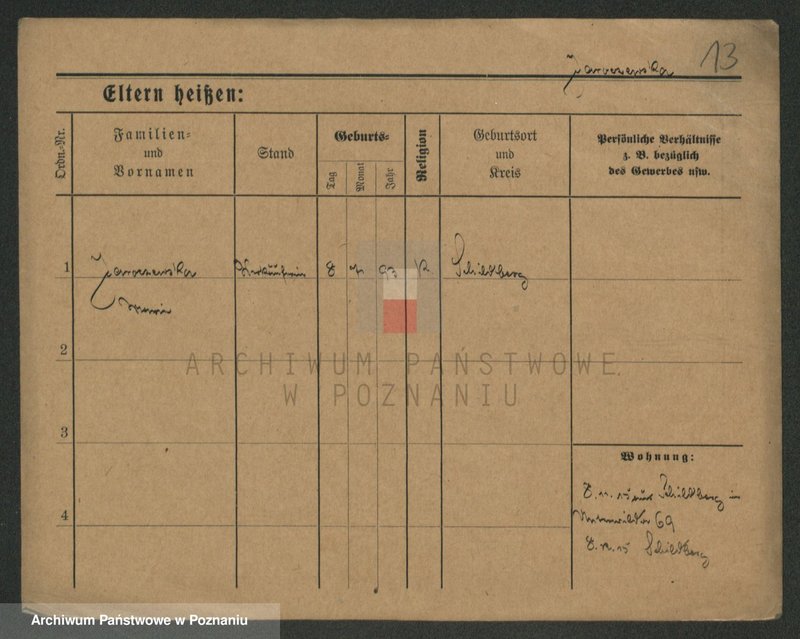 13
Jaroszewska
Eltern heißen:
Ordn.-Nr.
Familien-
und
Vornamen
Stand
Geburts-
Tag
Monat
Jahr
Religion
Geburtsort
und
Kreis
Persönliche Verhältnisse
z. B. bezüglich
des Gewerbes usw.
1
Jaroszewska
Verkäuferin
8
7
93
Schildberg
2
ARCHIWUM PAŃSTWOWE
W POZNANIU
3
Wohnung:
8. 11. 15 aus Schildberg in
69
4
15 Schildberg
Archiwum Państwowe w Poznaniu